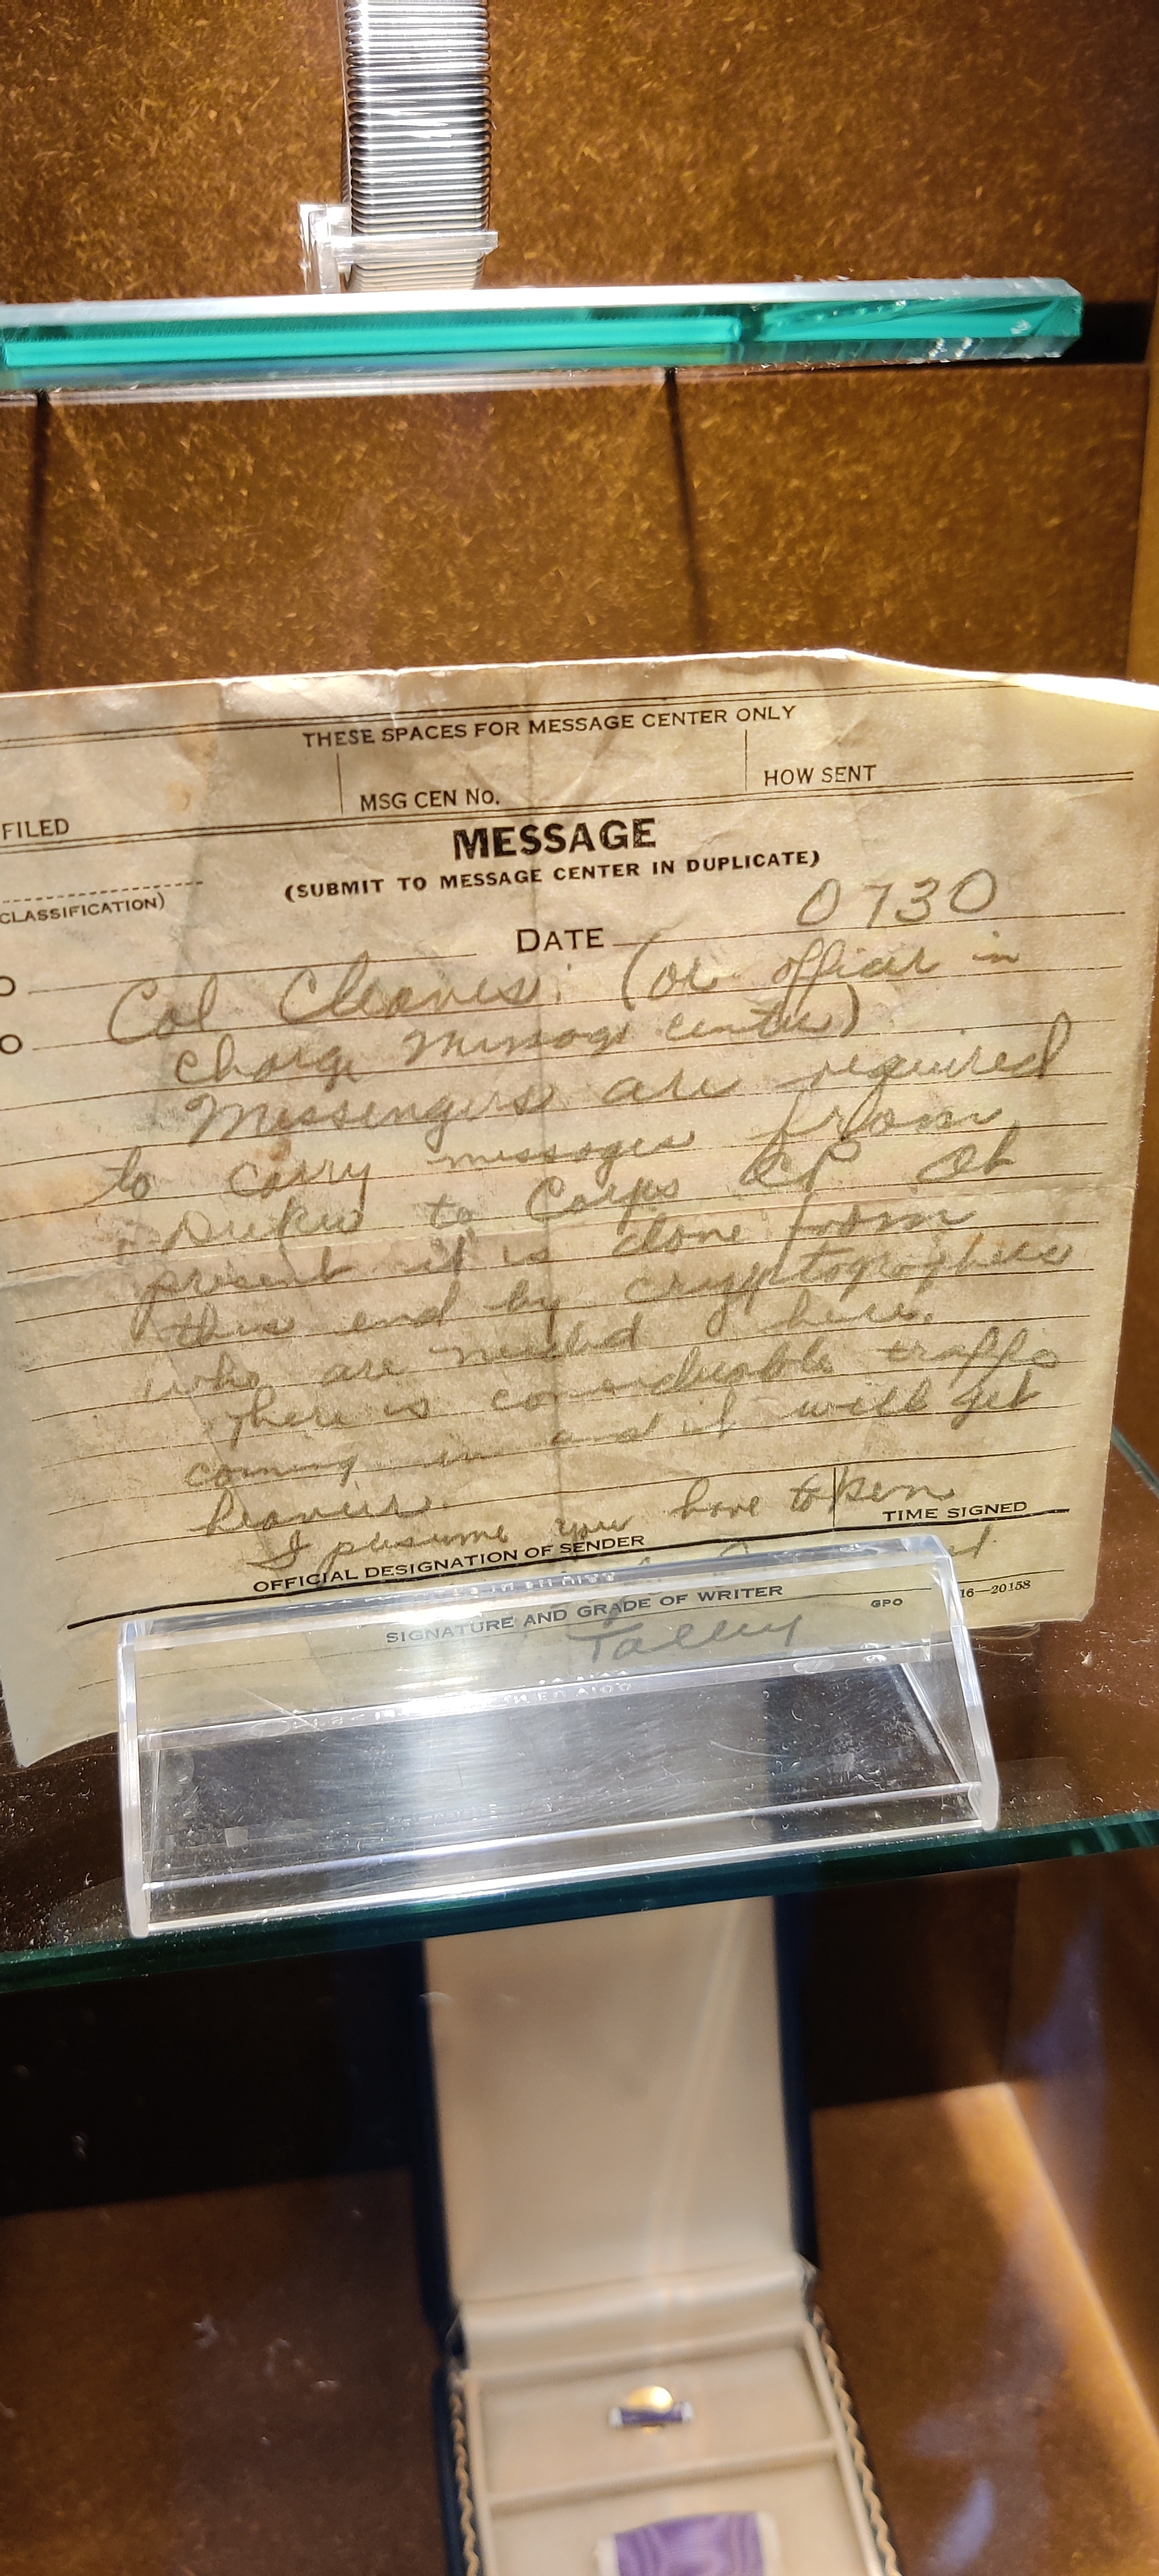 THESE SPACES FOR MESSAGE CENTER ONLY
FILED
MSG CEN No.
HOW SENT
MESSAGE
(SUBMIT TO MESSAGE CENTER IN DUPLICATE)
CLASSIFICATION)
DATE 0730
Col Cleaves: (or officer in
charge message center)
Messengers are required
to carry messages from
to Corps CP. At
present it is done from
this end by cryptographers
who are needed here.
There is considerable traffic
coming in and it will get
heavier.
I presume you have taken
OFFICIAL DESIGNATION OF SENDER
TIME SIGNED
SIGNATURE AND GRADE OF WRITER
GPO
16—20158
Talley